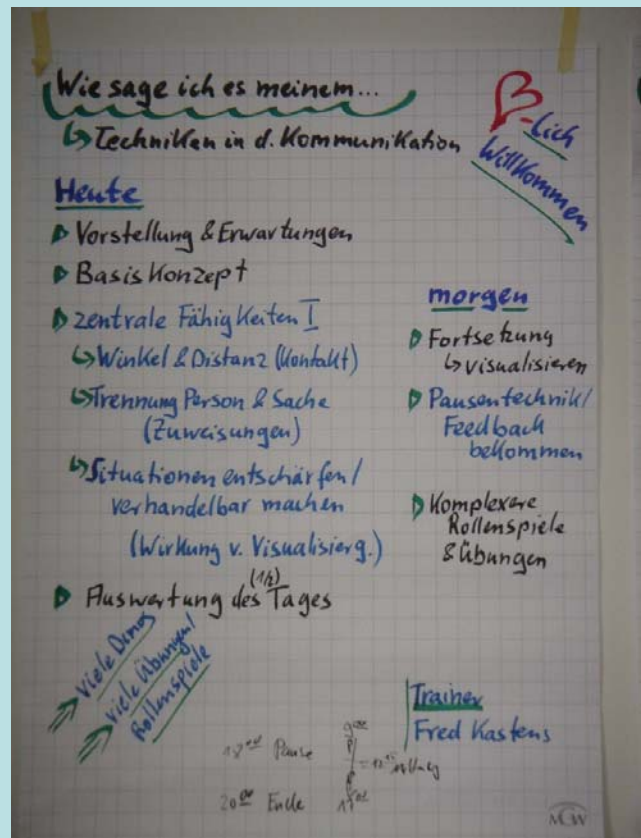 Wie sage ich es meinem...
↳ Techniken in d. Kommunikation
-lich
Willkommen
Heute
▶ Vorstellung & Erwartungen
▶ Basis Konzept
▶ zentrale Fähigkeiten I
↳ Winkel & Distanz (Kontakt)
↳ Trennung Person & Sache
(Zuweisungen)
↳ Situationen entschärfen/
verhandelbar machen
(Wirkung v. Visualisierg.)
▶ Auswertung des (1/2) Tages
viele Demos
viele Übungen/
Rollenspiele
morgen
▶ Fortsetzung
↳ visualisieren
▶ Pausentechnik/
Feedback
bekommen
▶ Komplexere
Rollenspiele
& Übungen
Trainer
Fred Kastens
18⁰⁰ Pause
20⁰⁰ Ende
9⁰⁰